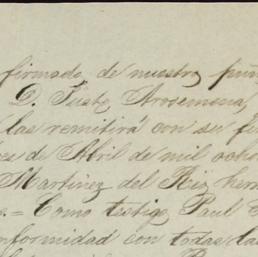 firmado, de nuestro puñ
D. Justo Arosemena,
las remitirá con su fi
es de Abril de mil ocho
Martinez del Rio her
= Como testigo, Paul
nformidad con todas la